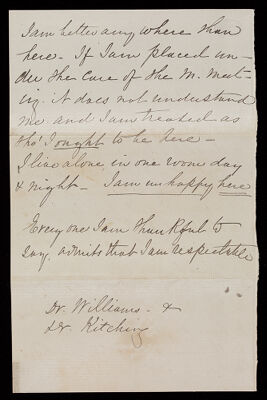 I am better any where than
here - If I am placed un-
der the care of the M. Meet-
ing. it does not understand
me and I am treated as
tho' I ought to be here -
I live alone in one room day
& night - I am unhappy here
Every one I am thankful to
say. admits that I am respectable
Dr. Williams - &
Dr. Kitching